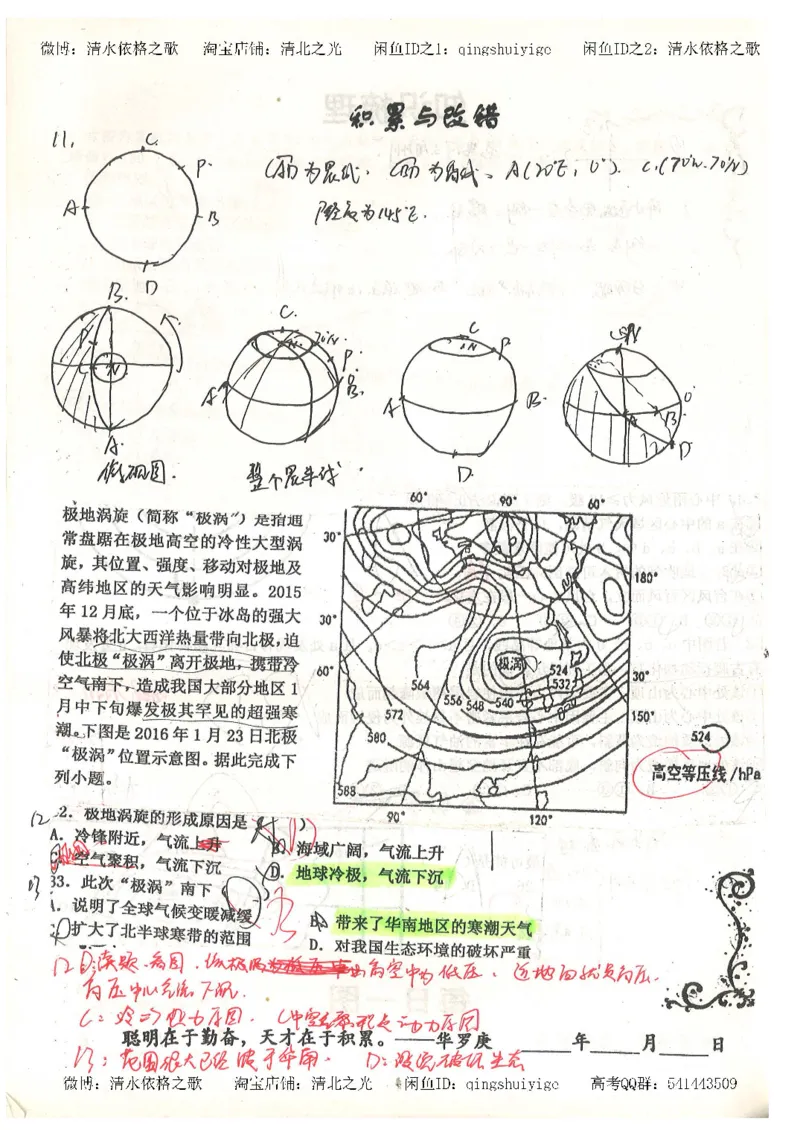 微博：清水依格之歌 淘宝店铺：清北之光 闲鱼ID之1：qingshuiyige 闲鱼ID之2：清水依格之歌
积累与改错
11.
C.
P.
A
B
D
A(20°E, 0°). C.(70°W.70°N)
经度为145°E.
B.
C
N
A.
C.
70°N.
N
P.
A
B.
C
N
P
A
B.
D.
N
A
B
D
0°
整个晨昏线.
极地涡旋（简称“极涡”）是指通
常盘踞在极地高空的冷性大型涡
旋，其位置、强度、移动对极地及
高纬地区的天气影响明显。2015
年12月底，一个位于冰岛的强大
风暴将北大西洋热量带向北极，迫
使北极“极涡”离开极地，携带冷
空气南下，造成我国大部分地区1
月中下旬爆发极其罕见的超强寒
潮。下图是2016年1月23日北极
“极涡”位置示意图。据此完成下
列小题。
60° 90° 60°
30°
180°
30°
60°
极涡
30°
524
532
564 556 548 540
572
150°
580
524
588
高空等压线/hPa
90° 120°
12
2．极地涡旋的形成原因是（ ）
A．冷锋附近，气流上升
B．海域广阔，气流上升
空气聚积，气流下沉
D．地球冷极，气流下沉
13
33．此次“极涡”南下（
．说明了全球气候变暖减缓
B．带来了华南地区的寒潮天气
扩大了北半球寒带的范围
D．对我国生态环境的破坏严重
12 D：读题、高空中为低压、近地面状况高压.
高压中心气流下沉.
聪明在于勤奋，天才在于积累。——华罗庚 年 月 日
13：范围很大已经 华南. D：没说破坏生态
微博：清水依格之歌 淘宝店铺：清北之光 闲鱼ID：qingshuiyige 高考QQ群：541443509